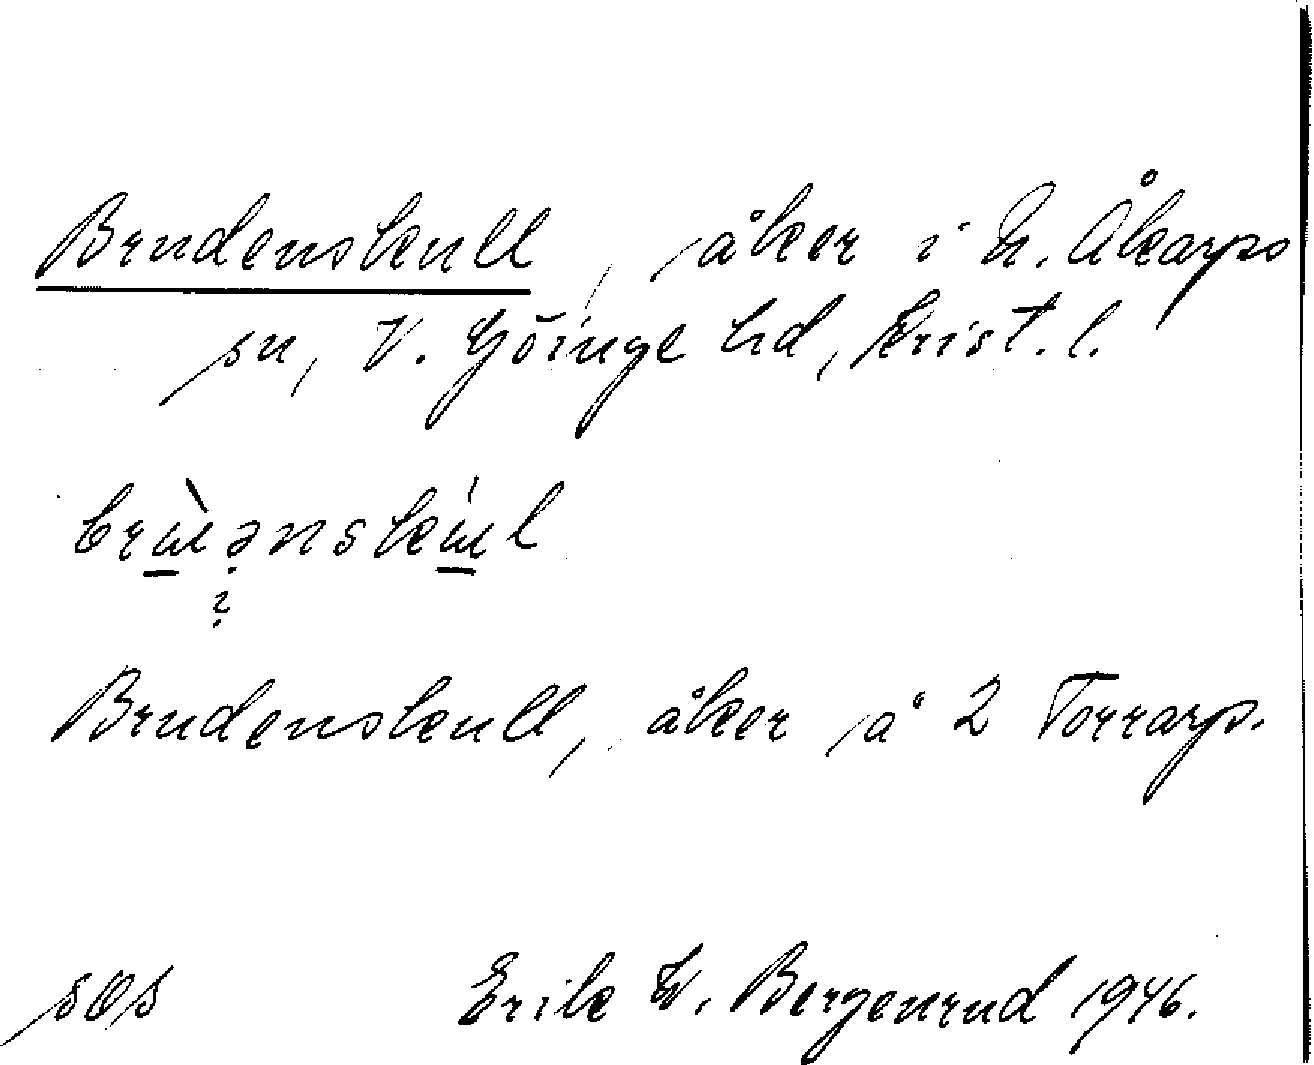 Brudenskull, åker i N. Åkarps
sn, V. Göinge hd, Krist. l.
Brudenskull, åker å 2 Torrarp.
sös Erik W. Bergenrud 1946.